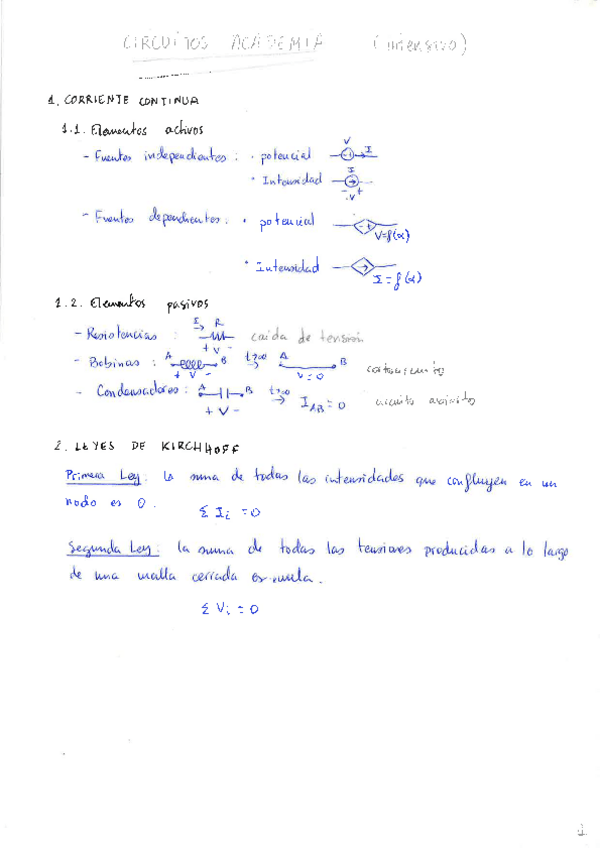 CIRCUITOS ACADEMIA (intensivo)
1. CORRIENTE CONTINUA
1.1. Elementos activos
- Fuentes independientes : • potencial V - + I
• Intensidad I - V +
- Fuentes dependientes : • potencial - + V=f(α)
• Intensidad I = f(α)
1.2. Elementos pasivos
- Resistencias : I → R + V - caída de tensión
- Bobinas : A B + V - t→∞ → A B V = 0 cortocircuito
- Condensadores : A B + V - t→∞ → I AB = 0 circuito abierto
2. LEYES DE KIRCHHOFF
Primera Ley : la suma de todas las intensidades que confluyen en un
nodo es 0. Σ Ii = 0
Segunda Ley : la suma de todas las tensiones producidas a lo largo
de una malla cerrada es nula.
Σ Vi = 0
1